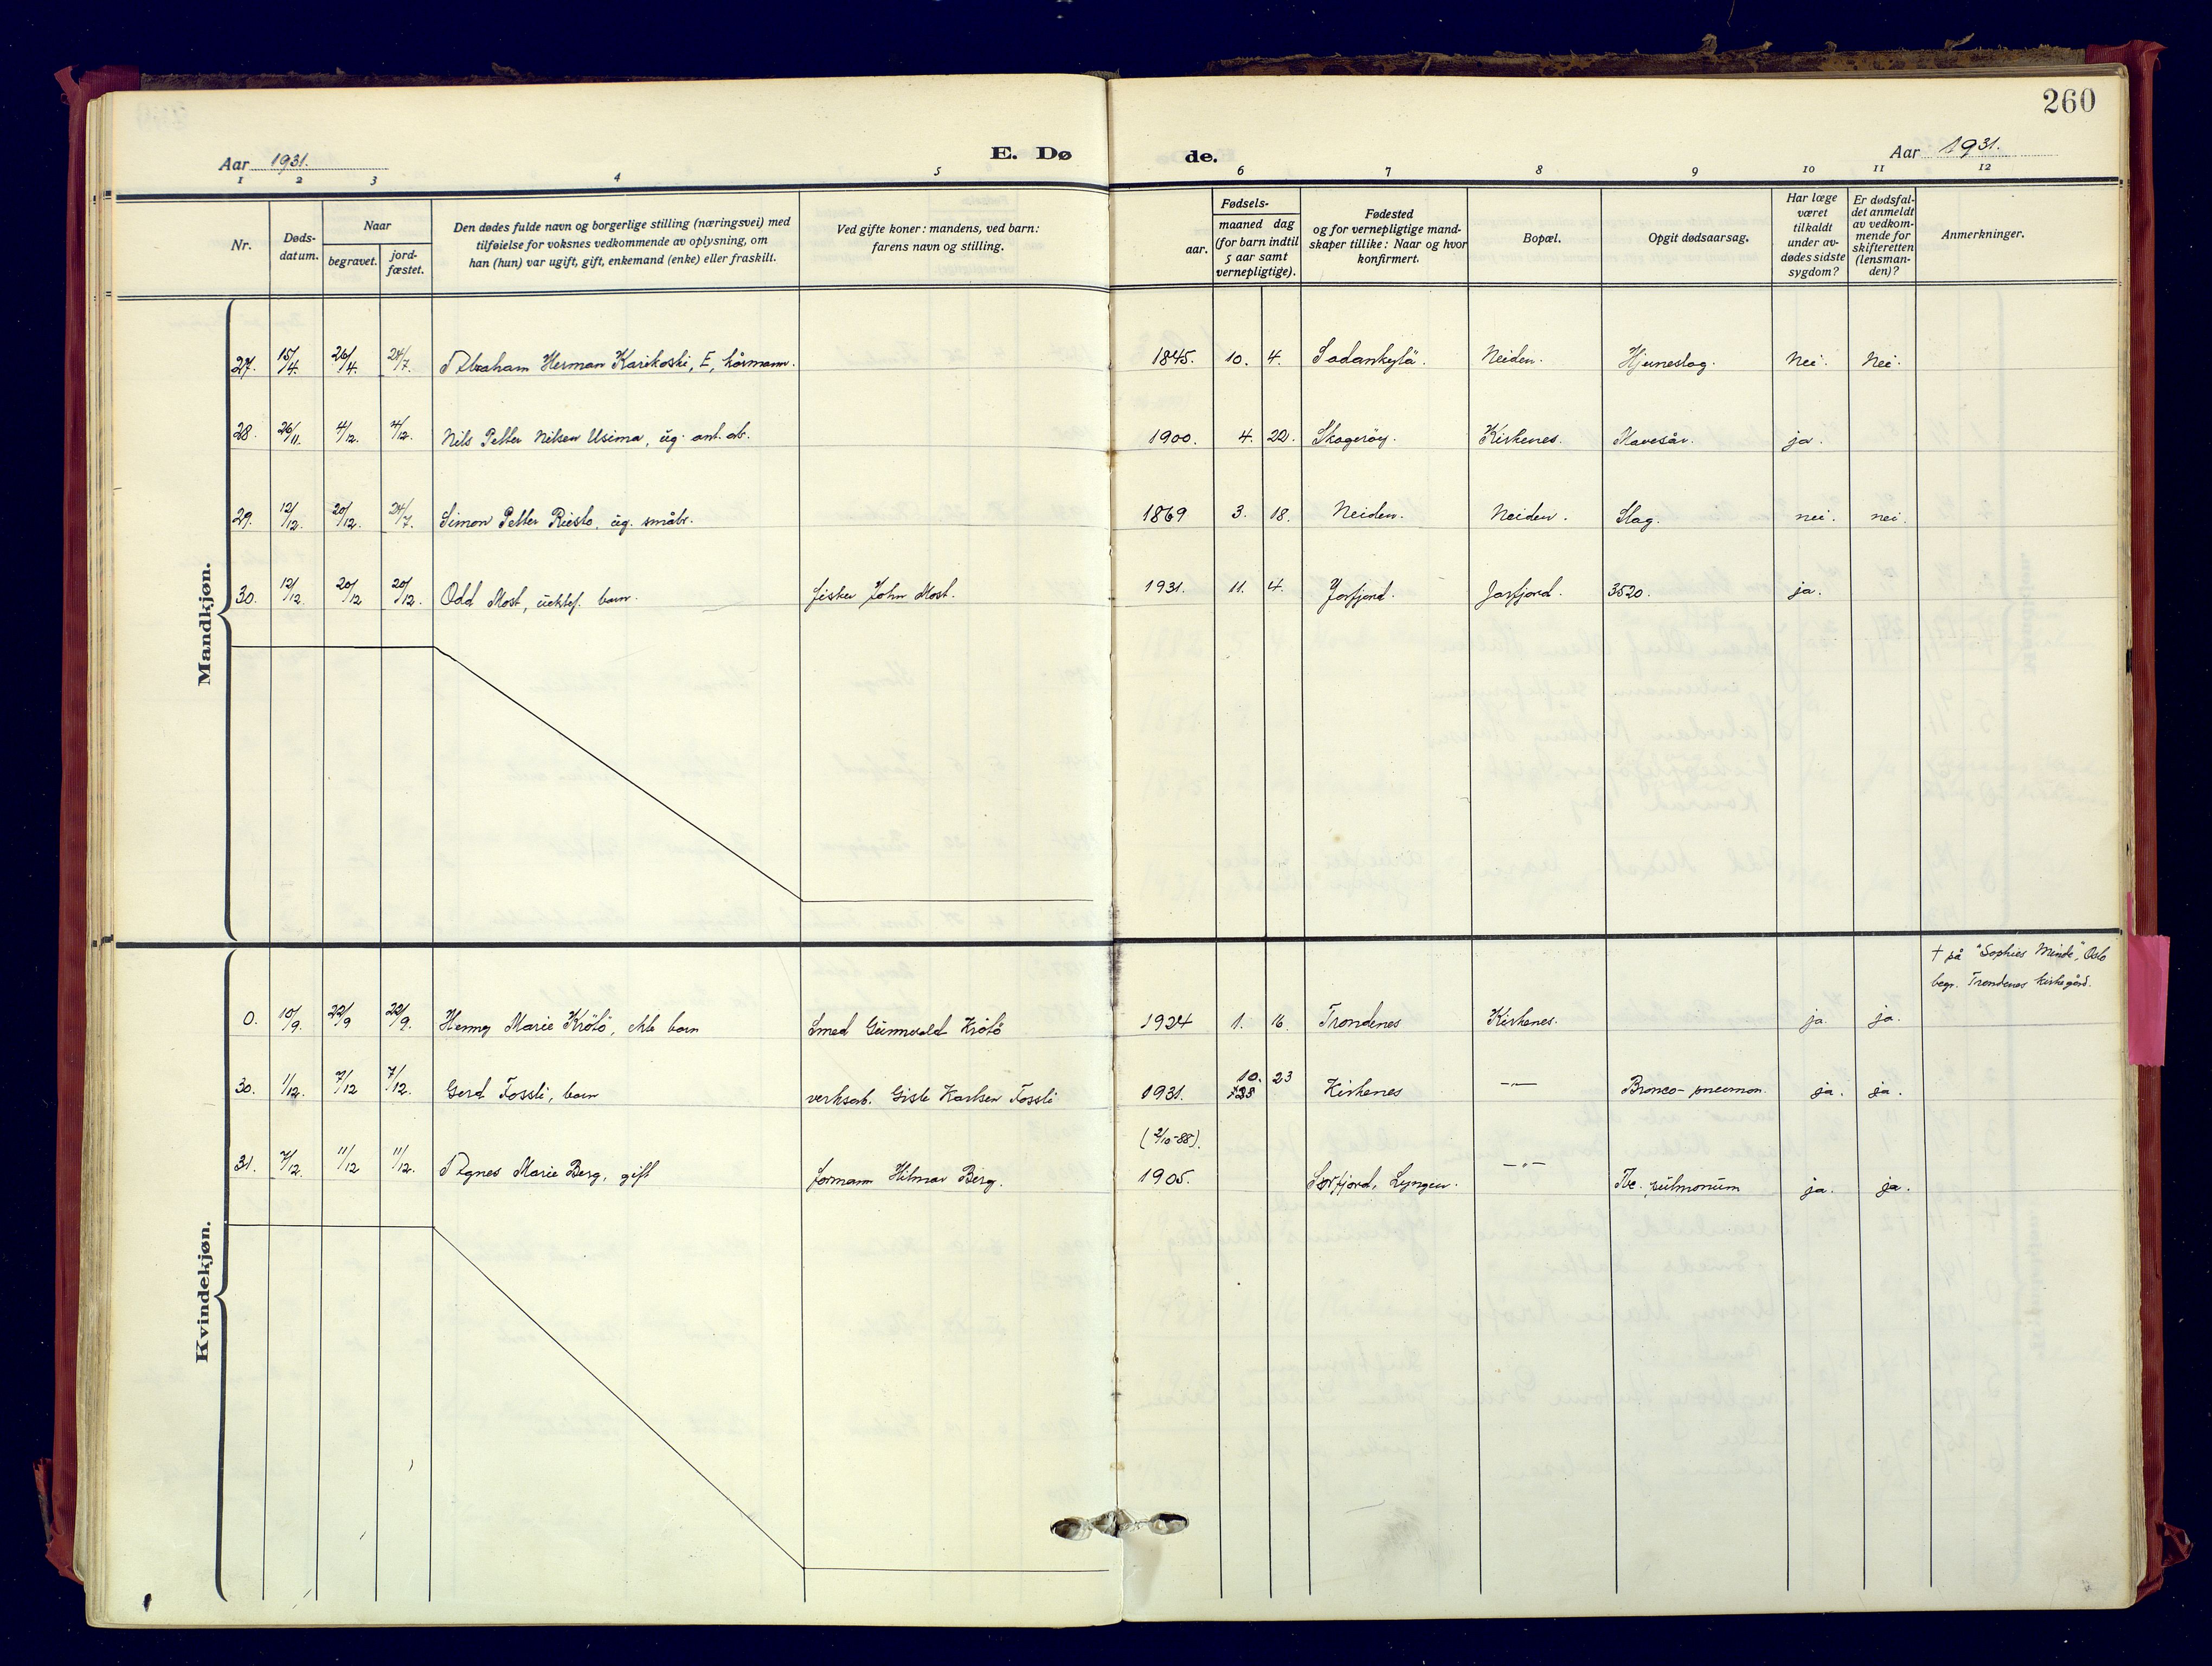 260
Aar 1931.
E. Dø
de.
Aar 1931.
1 2 3 4 5 6 7 8 9 10 11 12
Nr.
Døds-
datum.
Naar
begravet.
jord-
fæstet.
Den dødes fulde navn og borgerlige stilling (næringsvei) med
tilføielse for voksnes vedkommende av oplysning, om
han (hun) var ugift, gift, enkemand (enke) eller fraskilt.
Ved gifte koner: mandens, ved barn:
farens navn og stilling.
Fødsels-
aar.
maaned dag
(for barn indtil
5 aar samt
vernepligtige).
Fødested
og for vernepligtige mand-
skaper tillike: Naar og hvor
konfirmert.
Bopæl.
Opgit dødsaarsag.
Har læge
været
tilkaldt
under av-
dødes sidste
sygdom?
Er dødsfal-
det anmeldt
av vedkom-
mende for
skifteretten
(lensman-
den)?
Anmerkninger.
Mandkjøn.
27. 15/4. 26/4. 24/7. Abraham Herman Karikoski, E, kårmann. 1845. 10. 4. Sodankylä. Neiden. Hjerneslag. Nei. Nei.
28. 26/11. 4/12. 4/12. Nils Petter Nilsen Usima, ug. anl. ab. 1900. 4. 22. Skogerøy. Kirkenes. ja.
29. 12/12. 20/12. 24/7. Simon Petter Riesto, ug. småbr. 1869 3. 18. Neiden. Neiden. Slag. nei. nei.
30. 12/12. 20/12 20/12. Odd Most, uektef. barn. fisker John Most. 1931. 11. 4. Jarfjord. Jarfjord. 3520. ja.
Kvindekjøn.
† på "Sophies Minde", Oslo
begr. Trondenes kirkegård.
0. 10/9. 22/9 22/9. Henny Marie Krötö, ekte barn Smed Gunnvald Krötö 1924 1. 16. Trondenes Kirkenes. ja. ja.
30. 1/12. 7/12 7/12. Gerd Fossli, barn verksarb. Gisle Karlsen Fossli 1931. 10. 23 Kirkenes —"— Bronco-pneumon. ja. ja.
(2/10-88).
31. 7/12. 11/12 11/12. Agnes Marie Berg, gift formann Hilmar Berg. 1905. Sørfjord, Lyngen. —"— Tbc. pulmonum ja. ja.